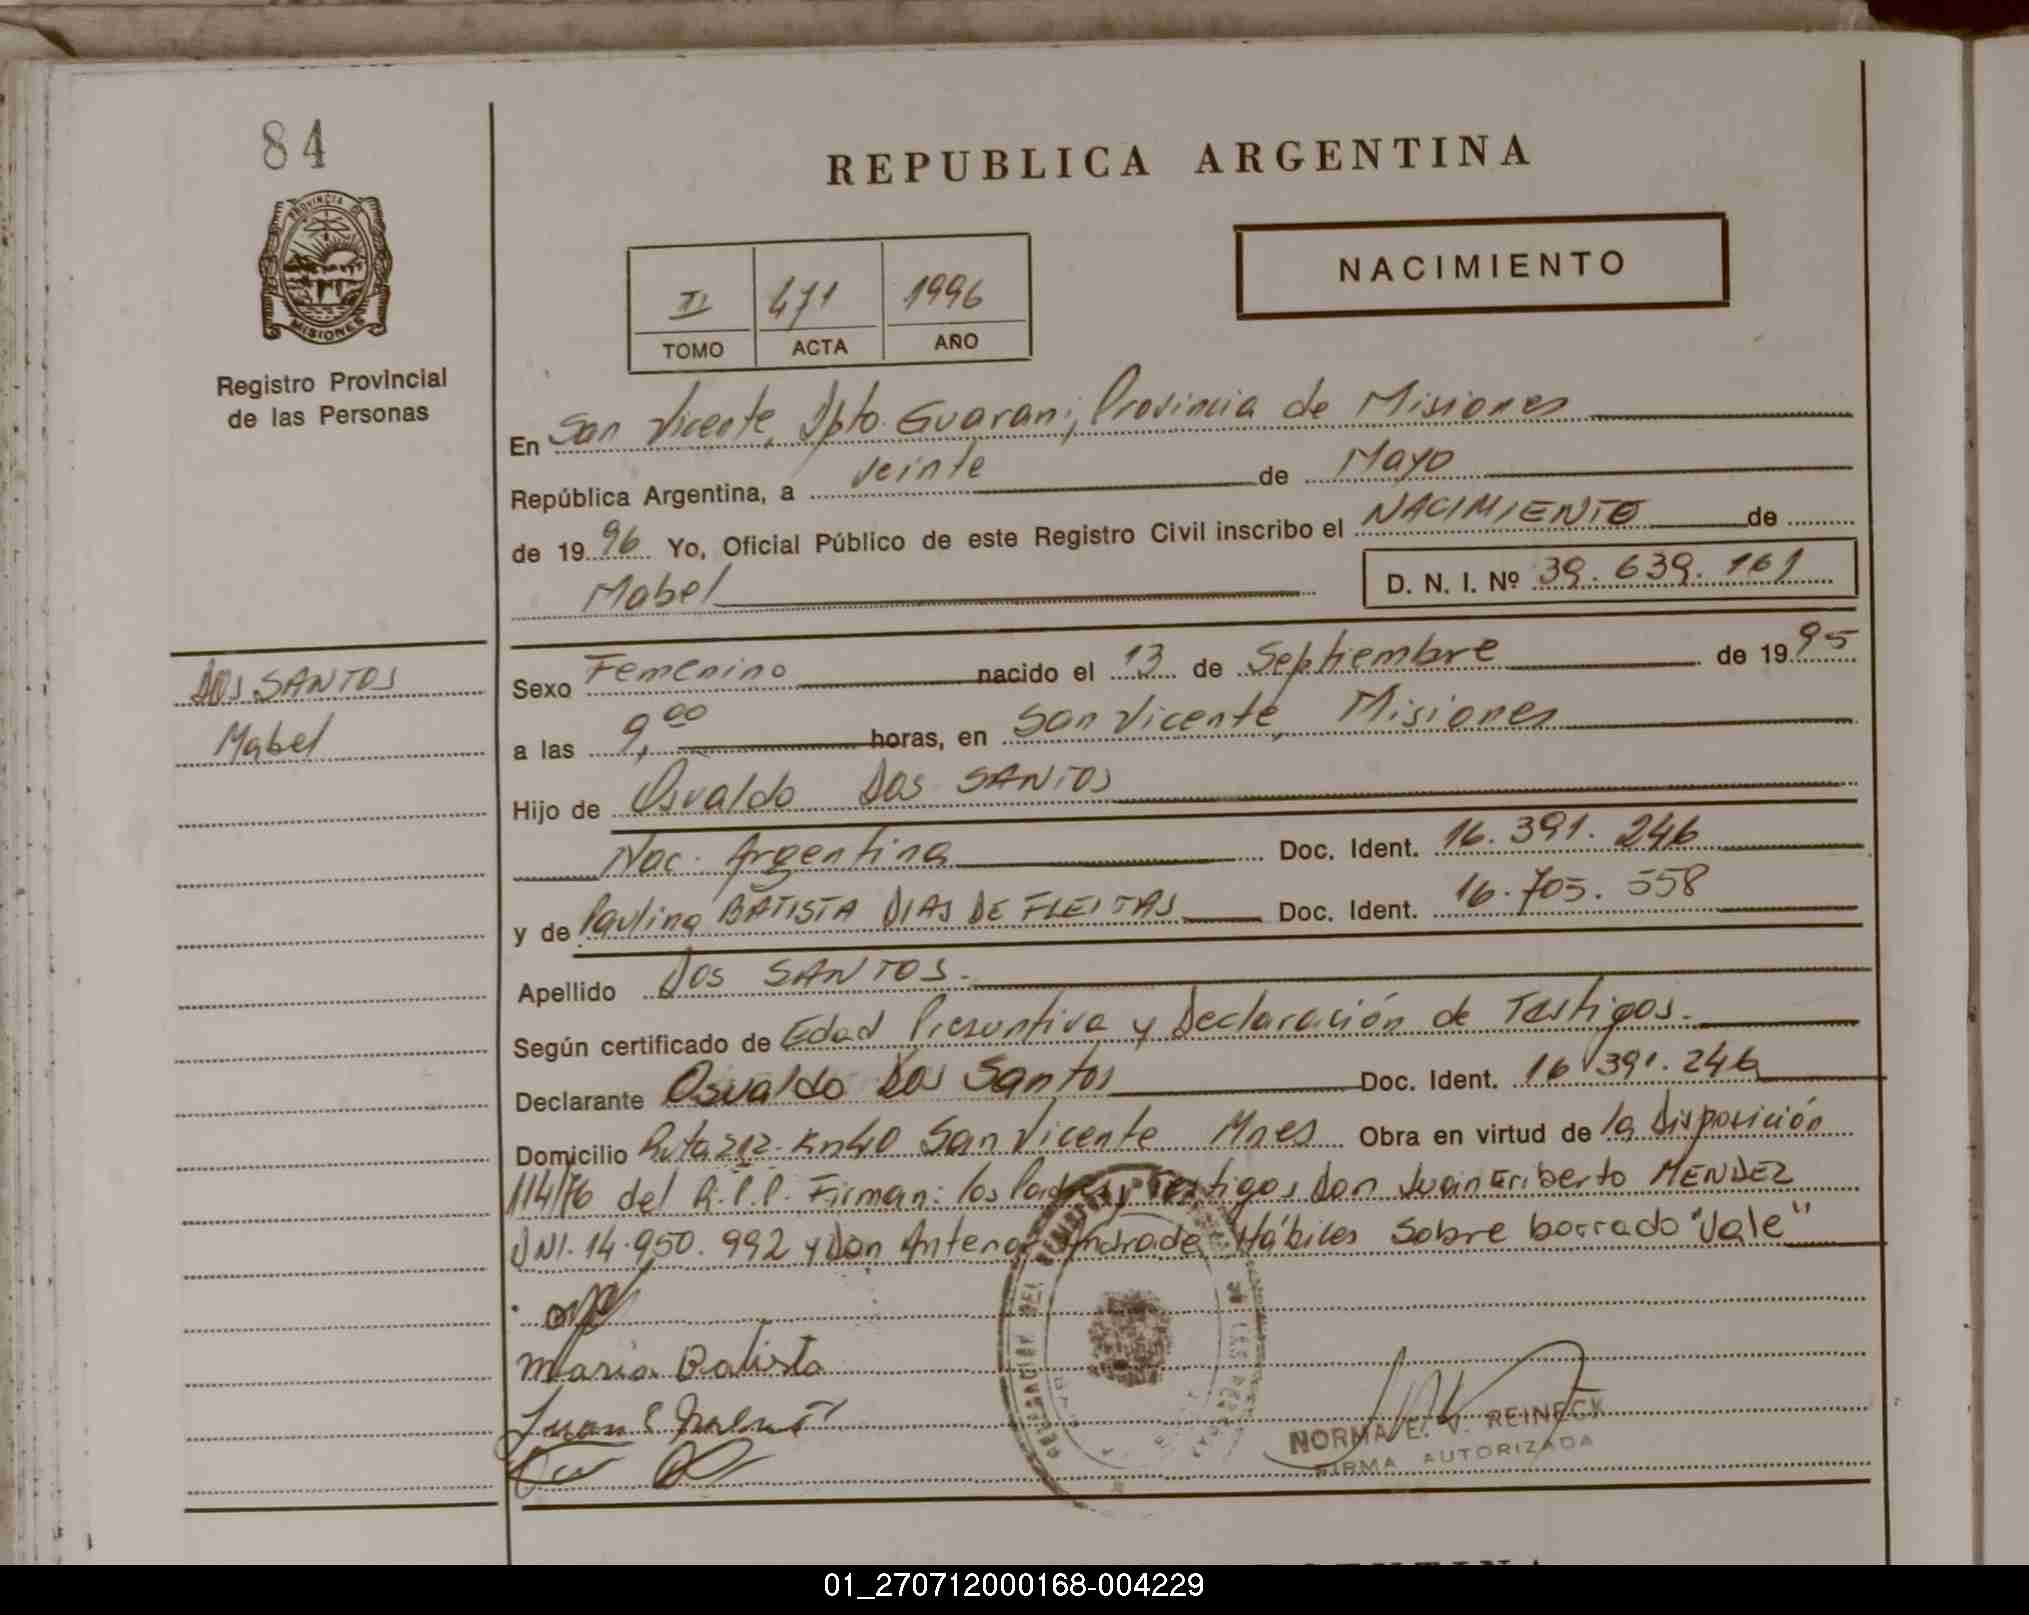 84
REPUBLICA ARGENTINA
PROVINCIA DE
MISIONES
Registro Provincial
de las Personas
II 471 1996
TOMO ACTA AÑO
NACIMIENTO
En San Vicente, Dpto. Guaraní, Provincia de Misiones
República Argentina, a veinte de Mayo
de 1996 Yo, Oficial Público de este Registro Civil inscribo el NACIMIENTO de
Mabel D. N. I. Nº 39.639.161
DOS SANTOS
Mabel
Sexo Femenino nacido el 13 de Septiembre de 1995
a las 9,00 horas, en San Vicente, Misiones
Hijo de Osvaldo DOS SANTOS
Nac. Argentina Doc. Ident. 16.391.246
y de Paulina BATISTA DIAS DE FLEITAS Doc. Ident. 16.705.558
Apellido DOS SANTOS.
Según certificado de Edad Presuntiva y Declaración de Testigos.
Declarante Osvaldo Dos Santos Doc. Ident. 16.391.246
Domicilio Ruta 212-Km40 San Vicente Mnes Obra en virtud de la Disposición
114/76 del R.P.P. Firman: los Padres y Testigos Don Juan Eriberto MENDEZ
DNI. 14.950.992 y Don Antenor Andrade Hábiles Sobre borrado "Vale"
Maria Batista
Juan E
NORMA E. V. REINECK
FIRMA AUTORIZADA
01_270712000168-004229